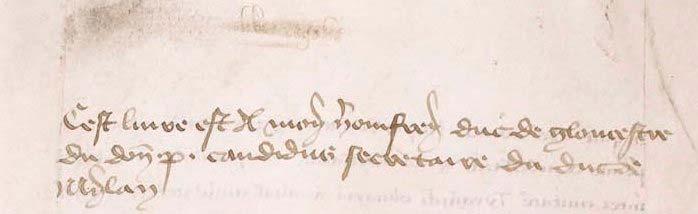 Cest livre est A moy homfrey duc de gloucestre
du don p. candidus secretaire du duc de
Mylan